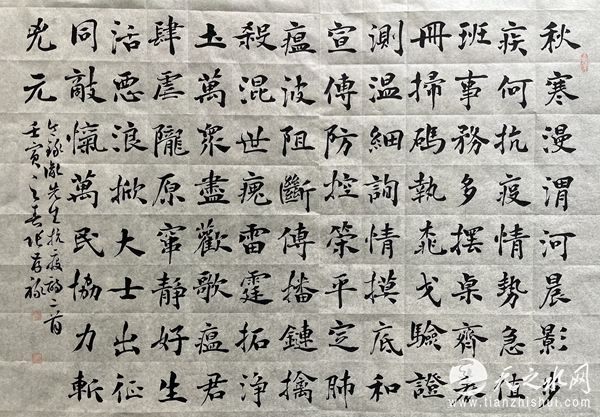 秋寒漫渭河晨影
疾何抗疫情勢急值
班事務多摆桌齊
冊掃碼執戈驗證
測温細詢情摸底和
宣傳防控築平定肺
瘟波阻斷傳播鏈擒
殺混世魂雷霆拓净
土萬眾盡歡歌瘟君
肆虐隴原寧静好生
活悪浪掀大士出征
同敵愾萬民協力斬
元
先生抗疫二首
壬寅之春張
天之水网
www.tianzhishui.com